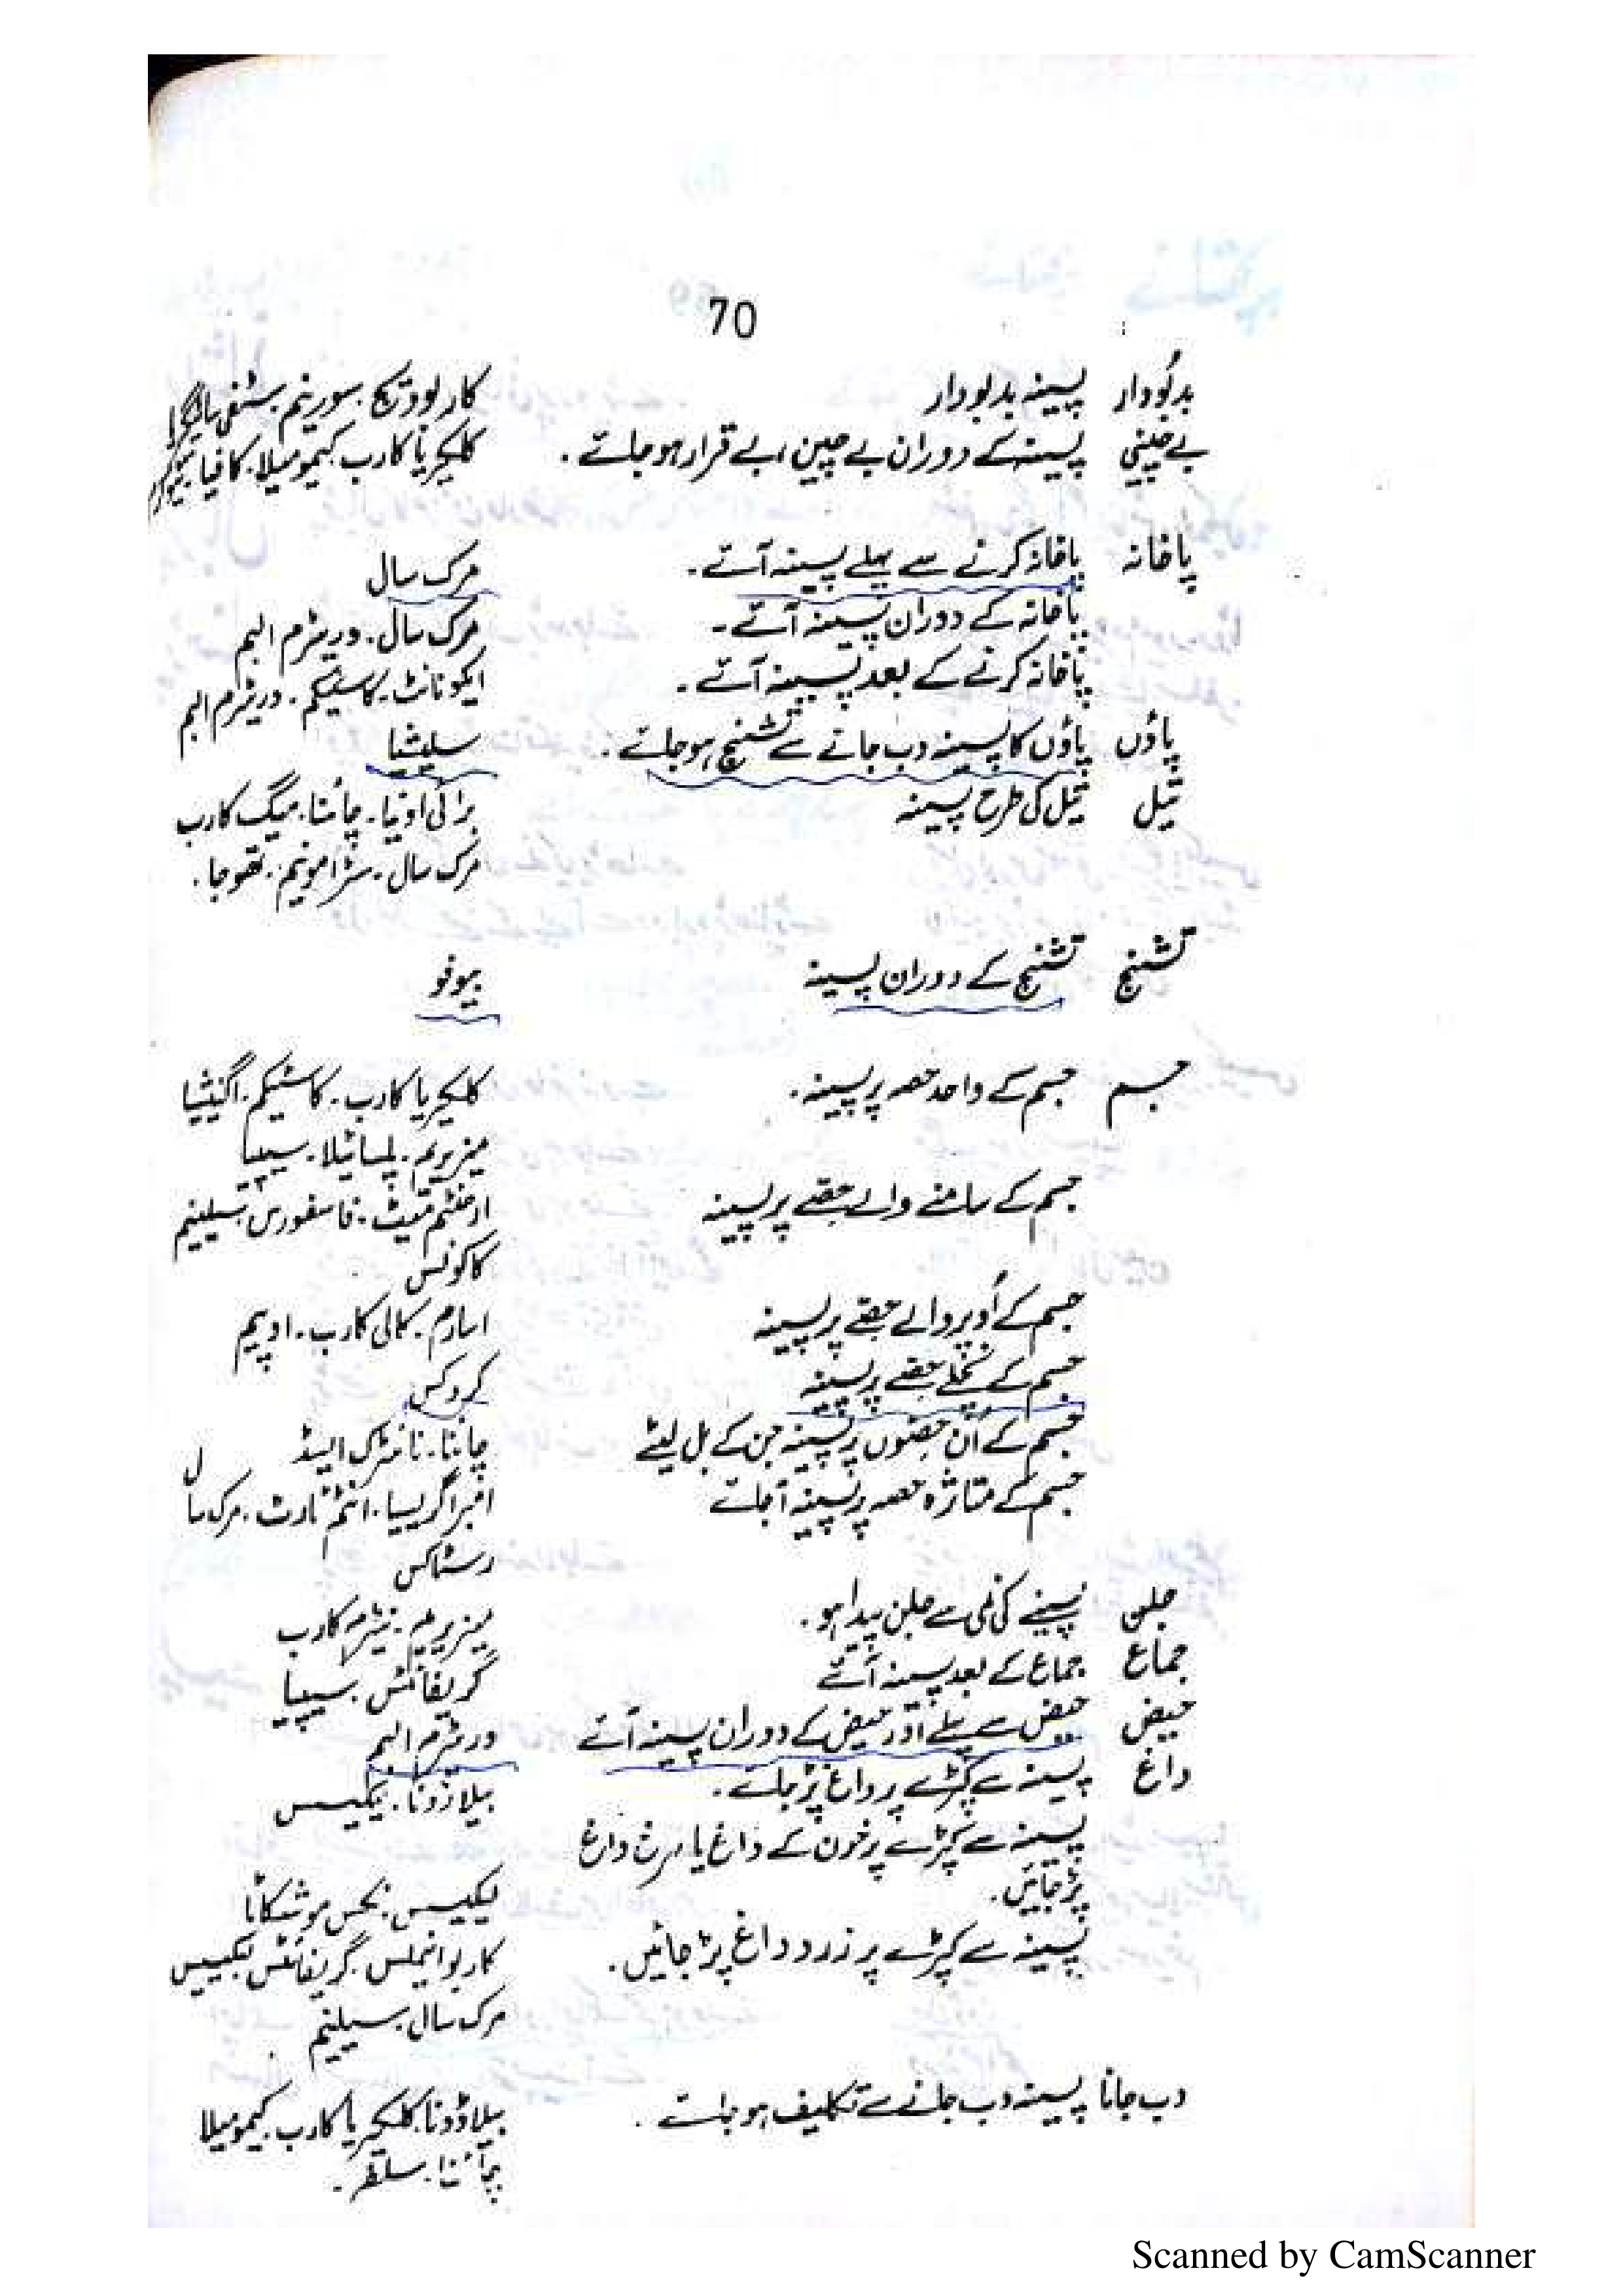 70
بدبُودار پسینہ بدبودار کاربوویج۔ سورینم۔ سٹفی سائیگریا
بے چینی پسینہ کے دوران بے چین، بے قرار ہو جائے۔ کلکیریا کارب۔ کیمومیلا۔ کافیا۔
پاخانہ پاخانہ کرنے سے پہلے پسینہ آئے۔ مرک سال
پاخانہ کے دوران پسینہ آئے۔ مرک سال۔ وریٹرم البم
پاخانہ کرنے کے بعد پسینہ آئے۔ ایکونائٹ۔ کاسٹیکم۔ وریٹرم البم
پاؤں پاؤں کا پسینہ دب جانے سے تشنج ہو جائے۔ سلیشیا
تیل تیل کی طرح پسینہ برائی اونیا۔ چائنا۔ میگ کارب
مرک سال۔ سٹرامونیم۔ تھوجا۔
تشنج تشنج کے دوران پسینہ بیوفو
جسم جسم کے واحد حصہ پر پسینہ۔ کلکیریا کارب۔ کاسٹیکم۔ اگنیشیا
میزیریم۔ پلساٹیلا۔ سیپیا
جسم کے سامنے والے حصّے پر پسینہ ارجنٹم میٹ۔ فاسفورس۔ سیلینیم
کاکولس
جسم کے اُوپر والے حصّے پر پسینہ اسارم۔ کالی کارب۔ اوپیم
جسم کے نچلے حصّے پر پسینہ کروکس
جسم کے اُن حصّوں پر پسینہ جن کے بل لیٹے چائنا۔ نائٹرک ایسڈ
جسم کے متاثرہ حصہ پر پسینہ آ جائے امبرا گریسیا۔ انٹم ٹارٹ۔ مرک سال
رسٹاکس
جلن پسینے کی نمی سے جلن پیدا ہو۔ میزیریم۔ نیٹرم کارب
جماع جماع کے بعد پسینہ آئے گریفائٹس۔ سیپیا
حیض حیض سے پہلے اور حیض کے دوران پسینہ آئے وریٹرم البم
داغ پسینہ سے کپڑے پر داغ پڑ جائے۔ بیلاڈونا۔ لیکیسس
پسینہ سے کپڑے پر خون کے داغ یا سرخ داغ
پڑ جائیں۔ لیکیسس۔ نکس موشکاٹا
پسینہ سے کپڑے پر زرد داغ پڑ جائیں۔ کاربو انیملس۔ گریفائٹس۔ لیکیسس
مرک سال۔ سیلینیم
دب جانا پسینہ دب جانے سے تکلیف ہو جائے۔ بیلاڈونا۔ کلکیریا کارب۔ کیمومیلا
چائنا۔ سلفر۔
Scanned by CamScanner